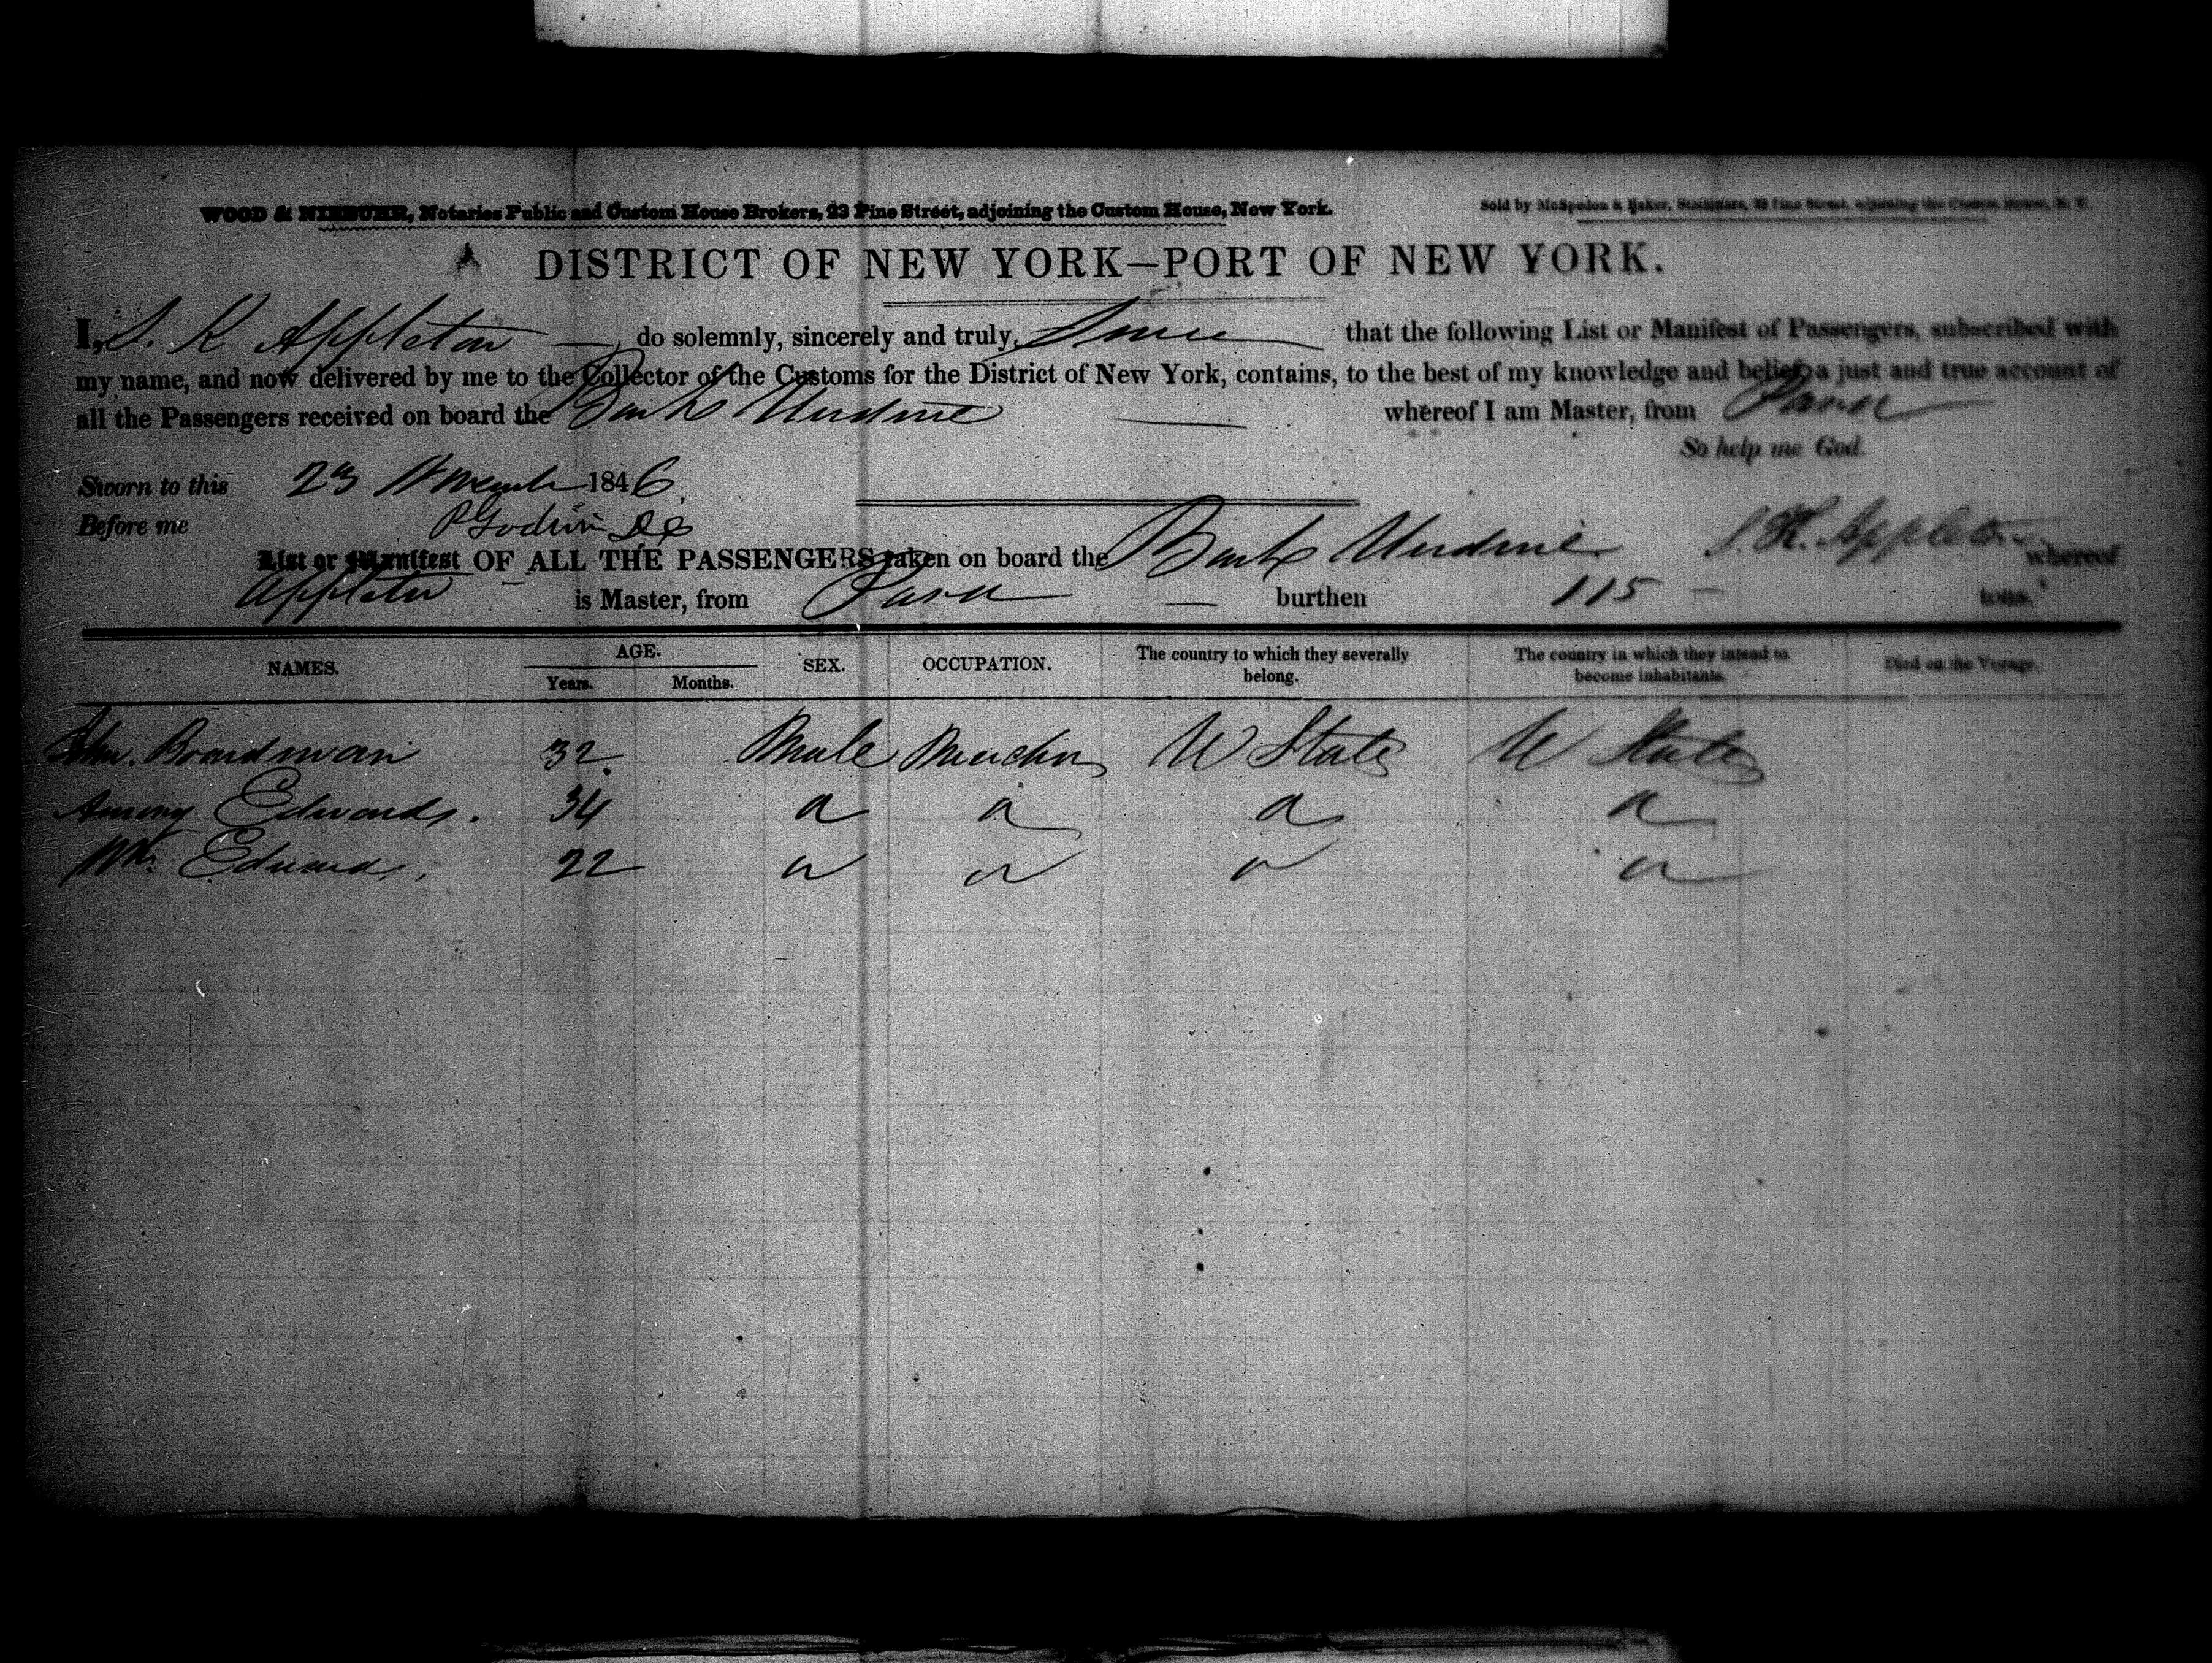 WOOD & NIEBUHR, Notaries Public and Custom House Brokers, 23 Pine Street, adjoining the Custom House, New York.
Sold by McSpedon & Baker, Stationers, 25 Pine Street, adjoining the Custom House, N. Y.
DISTRICT OF NEW YORK—PORT OF NEW YORK.
I, S. K Appleton — do solemnly, sincerely and truly, that the following List or Manifest of Passengers, subscribed with
my name, and now delivered by me to the Collector of the Customs for the District of New York, contains, to the best of my knowledge and belief, a just and true account of
all the Passengers received on board the Bark Undine — whereof I am Master, from Para
So help me God.
Sworn to this 23 November 1846
Before me P Godwin
S. K. Appleton
List or Manifest OF ALL THE PASSENGERS taken on board the Bark Undine whereof
Appleton is Master, from Para — burthen 115 — tons.
NAMES. AGE. SEX. OCCUPATION. The country to which they severally belong. The country in which they intend to become inhabitants. Died on the Voyage.
Years. Months.
Boardman 32 Male U States U States
Edwards. 34 " " " "
Edwards. 22 " " " "